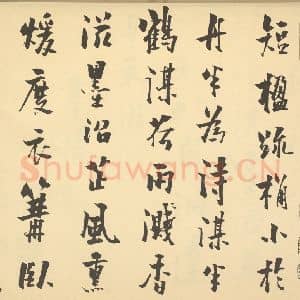 短楹疏牖小於
舟半為詩謀半
鶴謀苔雨濺香
滋墨沼芷風熏
煖度衣篝臥
Shufawang.CN